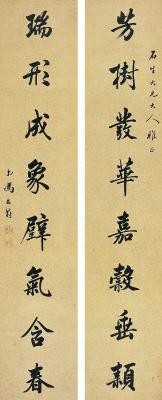 石生大兄大人雅正
芳樹發華嘉穀垂穎
瑞形成象璧氣含春
馮文蔚